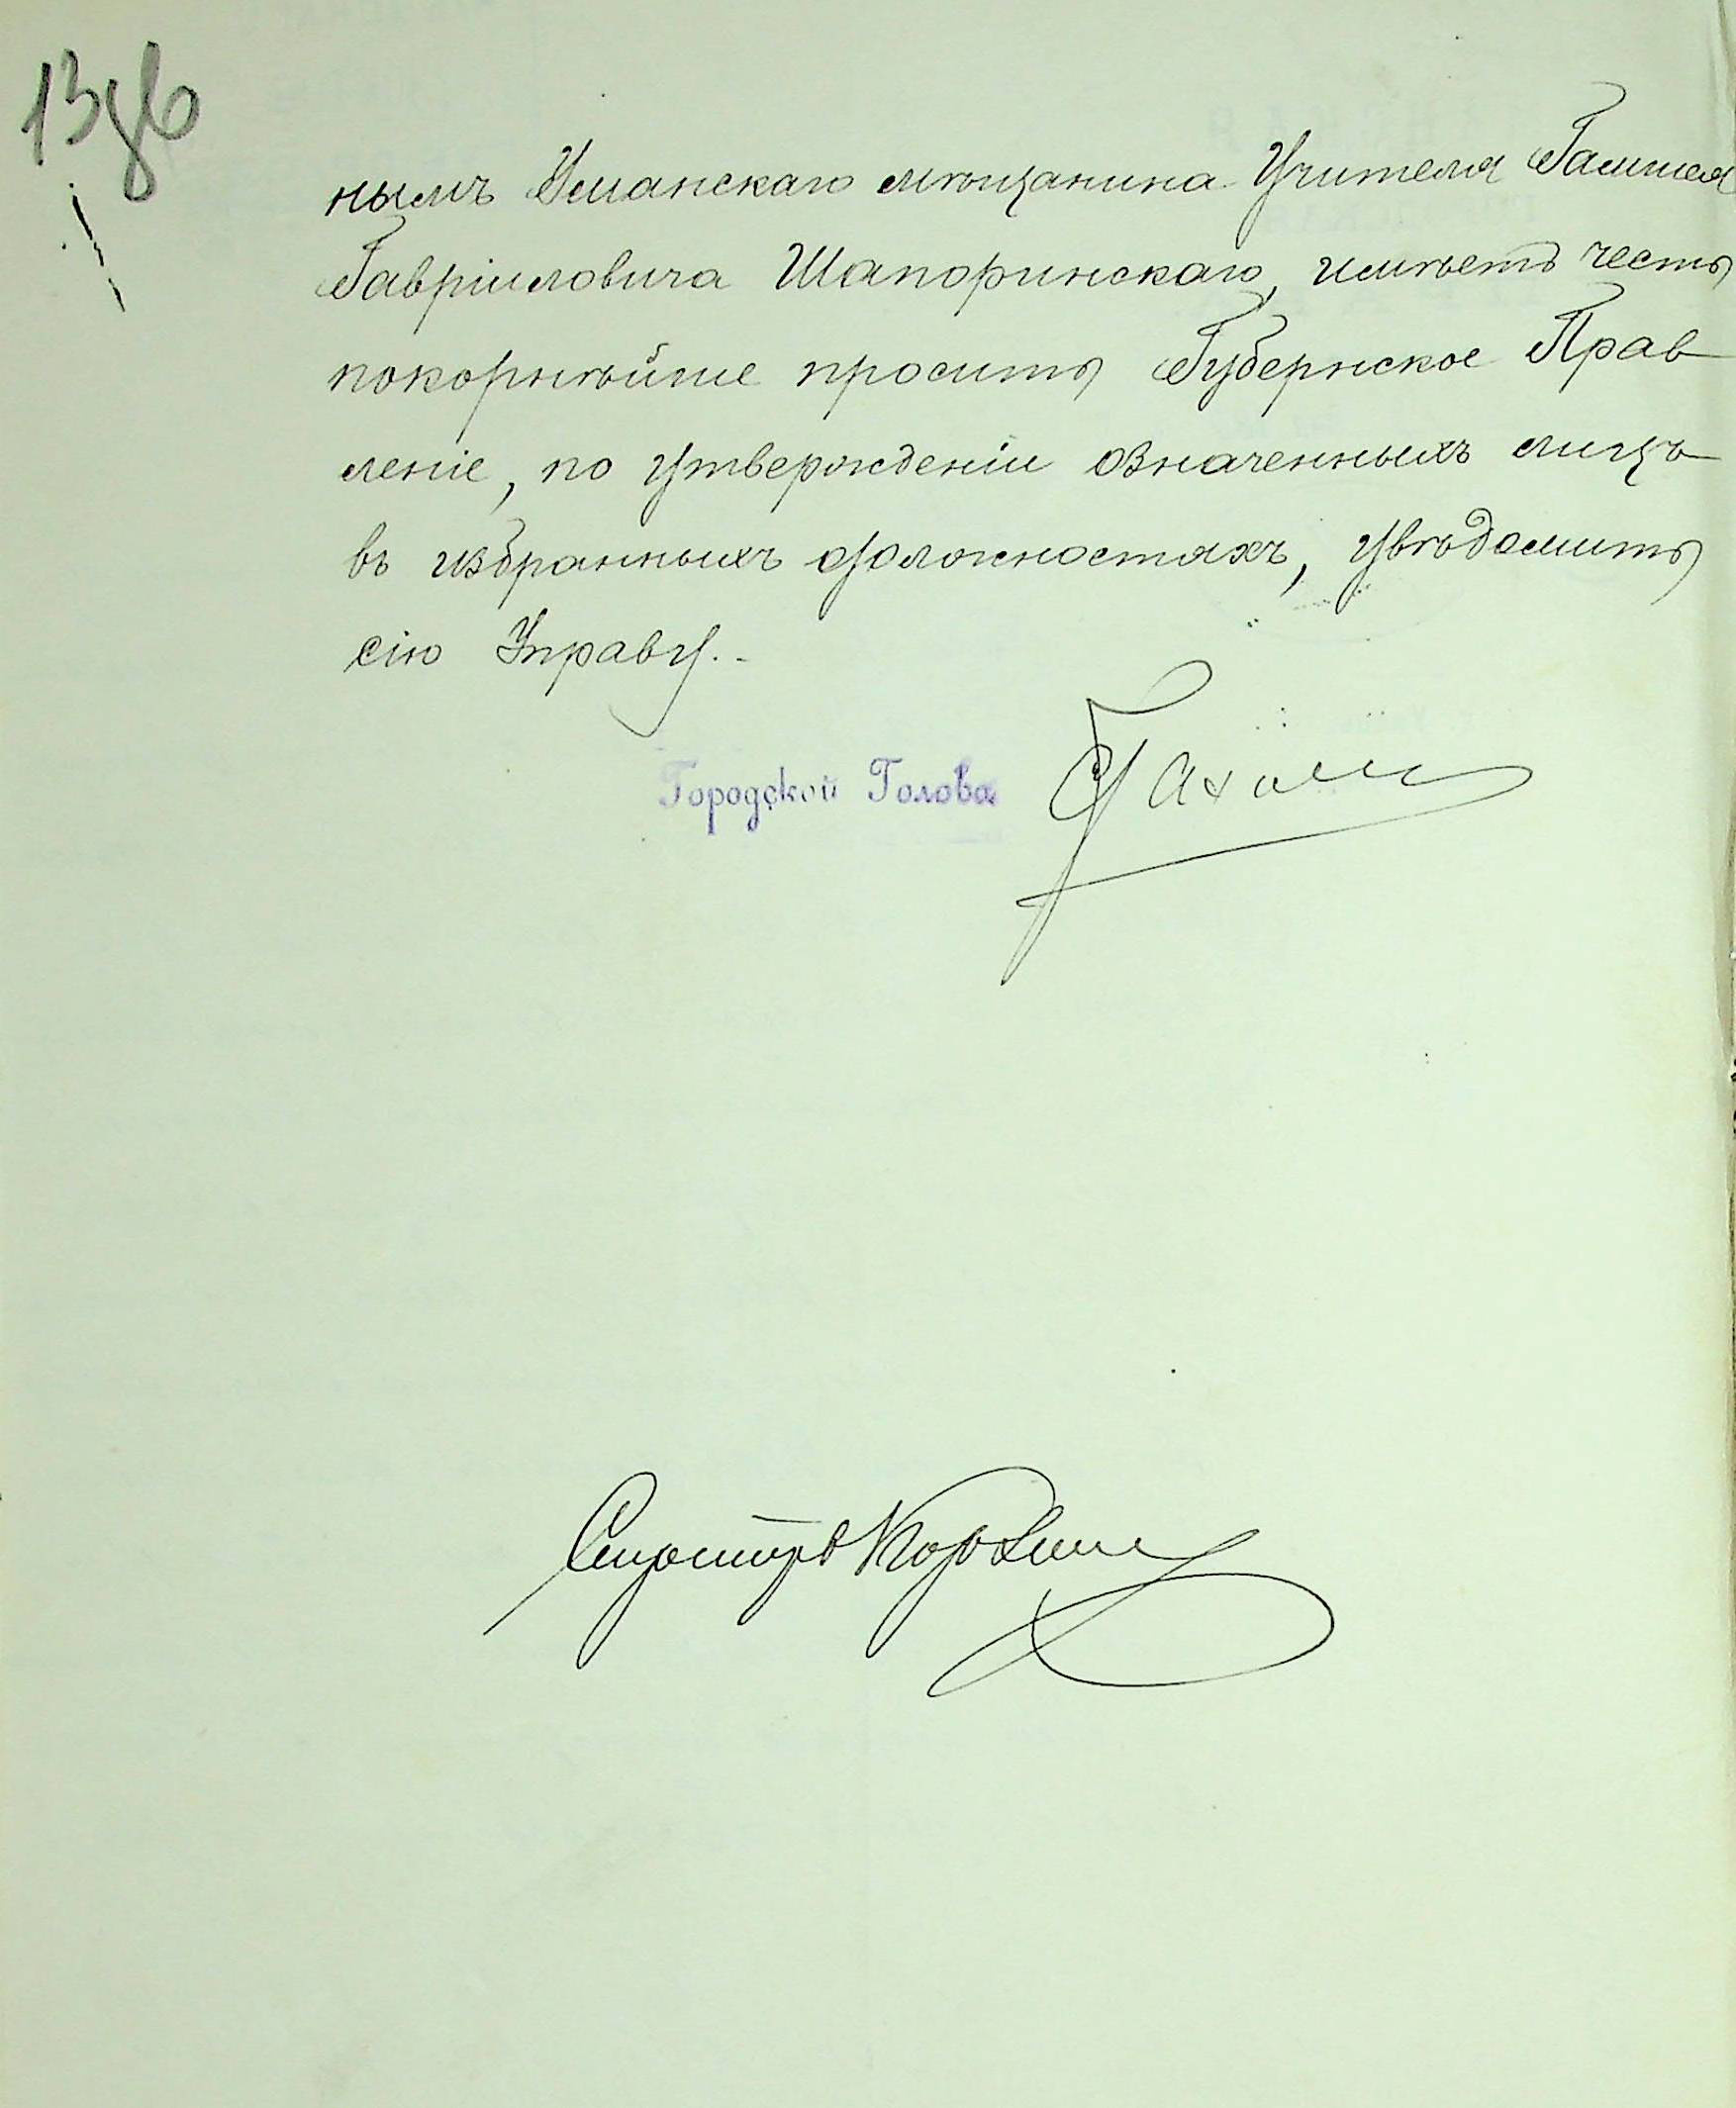 13 об
нымъ Уманскаго мѣщанина Учителя
Гавріиловича Шапоринскаго, имѣетъ честь
покорнѣйше просить Губернское Прав
леніе, по утвержденіи означенныхъ лицъ
въ избранныхъ должностяхъ, увѣдомить
сію Управу.
Городской Голова